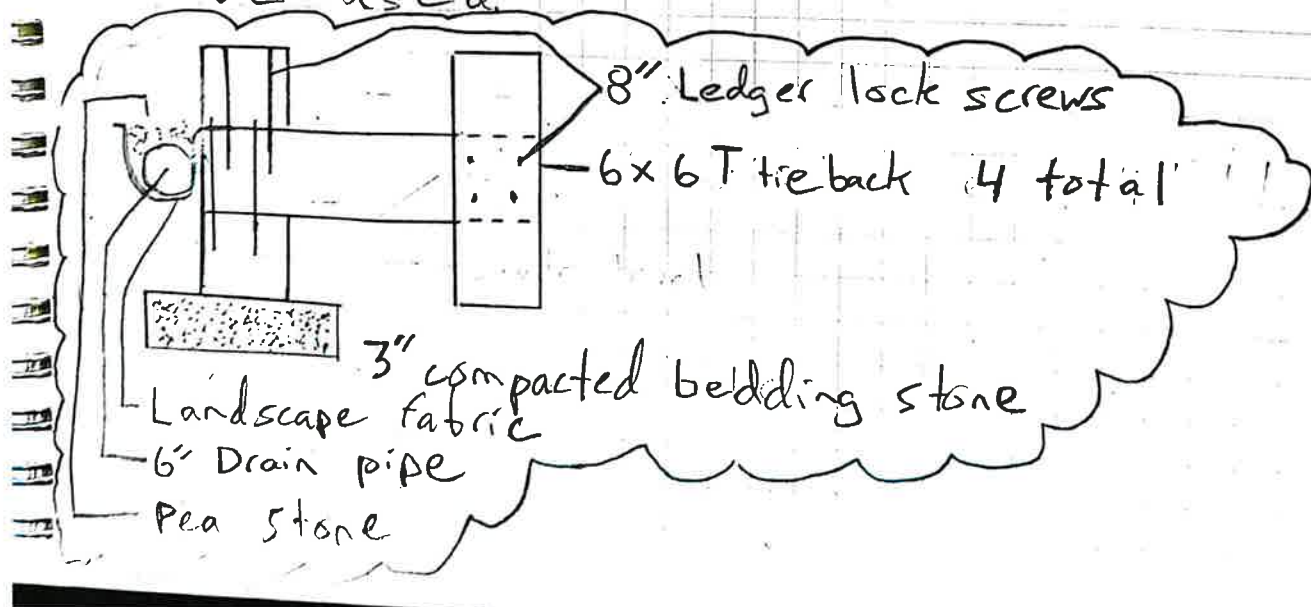 8" Ledger lock screws
6x6 T tieback 4 total
3" compacted bedding stone
Landscape fabric
6" Drain pipe
Pea stone